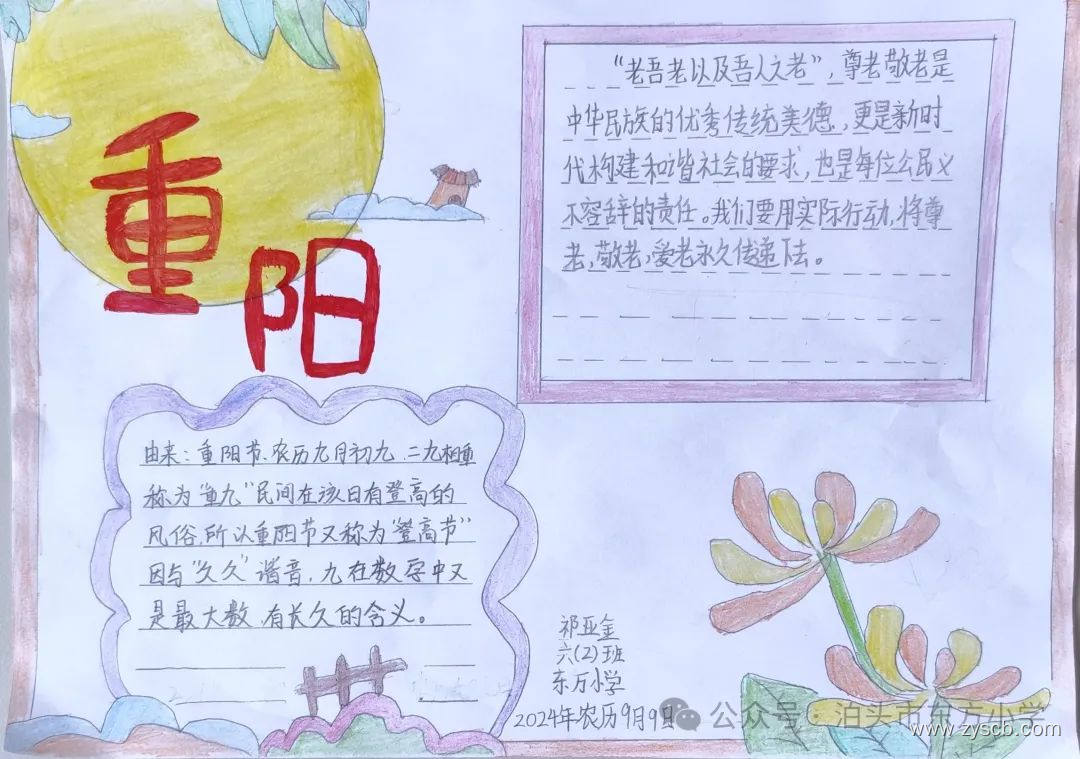 重阳
"老吾老以及吾人之老",尊老敬老是
中华民族的优秀传统美德,更是新时
代构建和谐社会的要求,也是每位公民义
不容辞的责任。我们要用实际行动,将尊
老,敬老,爱老永久传递下去。
由来:重阳节、农历九月初九,二九相重
称为"重九"民间在该日有登高的
风俗,所以重阳节又称为"登高节"
因与"久久"谐音,九在数字中又
是最大数,有长久的含义。
祁亚金
六(2)班
东方小学
2024年农历9月9日
公众号·泊头市东方小学
www.zyscb.com